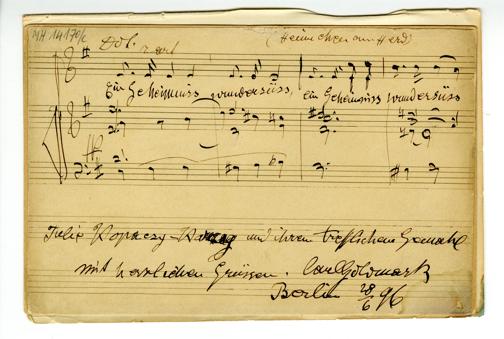 MH 14170/c
(Heimchen am Herd)
zart
Ein Geheimniss wundersüss, ein Geheimniss wundersüss
Julie Kopaczy und ihrem trefflichen Gemahl
mit herzlichen Grüssen. Carl Goldmark
Berlin 28/6 96